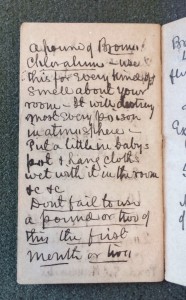 a pound of Bromo
Chloralum – use
this for every kind of
smell about your
room – It will destroy
most every poison
in atmosphere –
Put a little in baby's
pot & hang cloths
wet with it in the room
&c &c
Dont fail to use
a pound or two of
this the first
month or two